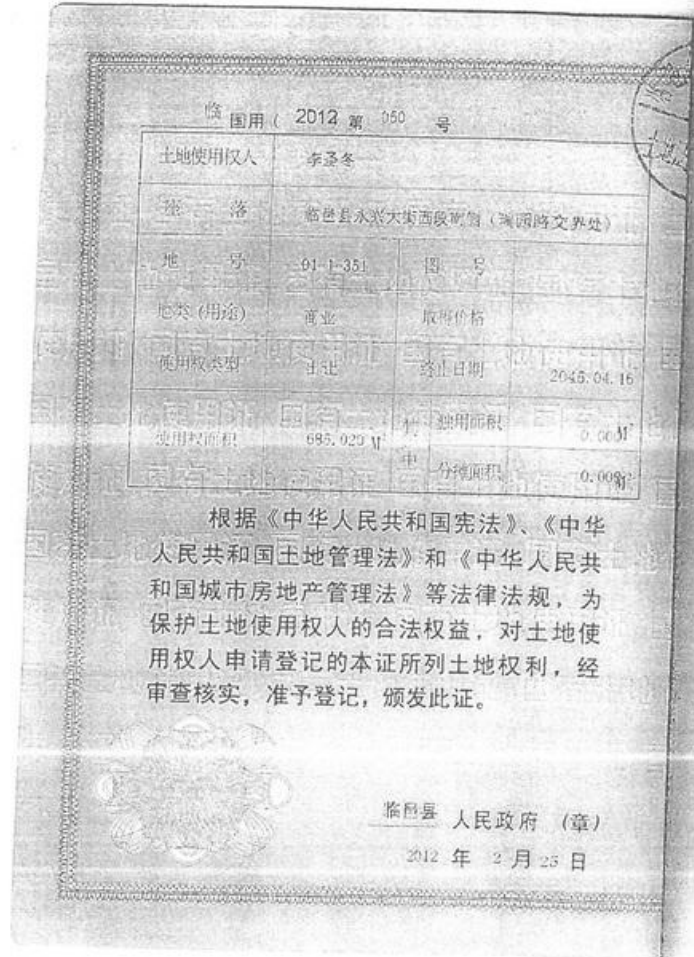 临 国用( 2012 第 050 号
土地使用权人 李圣冬
座 落 临邑县永兴大街西段南侧(瑞园路交界处)
地 号 01-1-351 图 号
地类(用途) 商业 取得价格
使用权类型 出让 终止日期 2045.04.16
使用权面积 685.020 M² 其中 独用面积 0.000 M²
分摊面积 0.000 M²
根据《中华人民共和国宪法》、《中华
人民共和国土地管理法》和《中华人民共
和国城市房地产管理法》等法律法规，为
保护土地使用权人的合法权益，对土地使
用权人申请登记的本证所列土地权利，经
审查核实，准予登记，颁发此证。
临邑县 人民政府 (章)
2012 年 2 月 25 日